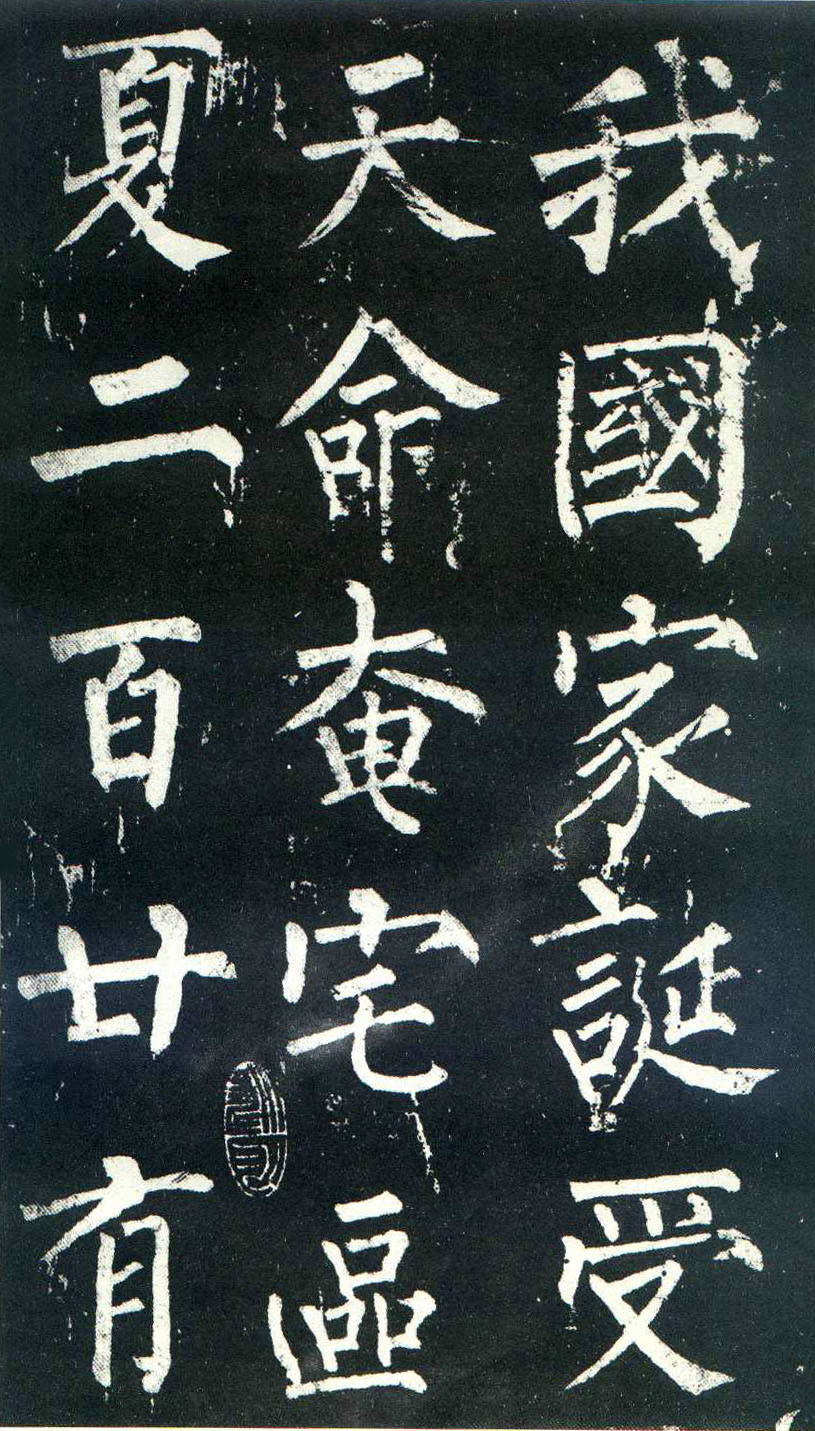 我國家誕受
天命奄宅區
夏二百廿有